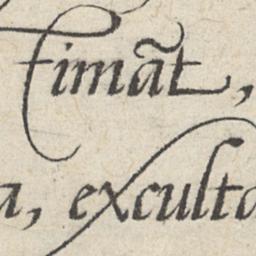 timãt,
a, exculta